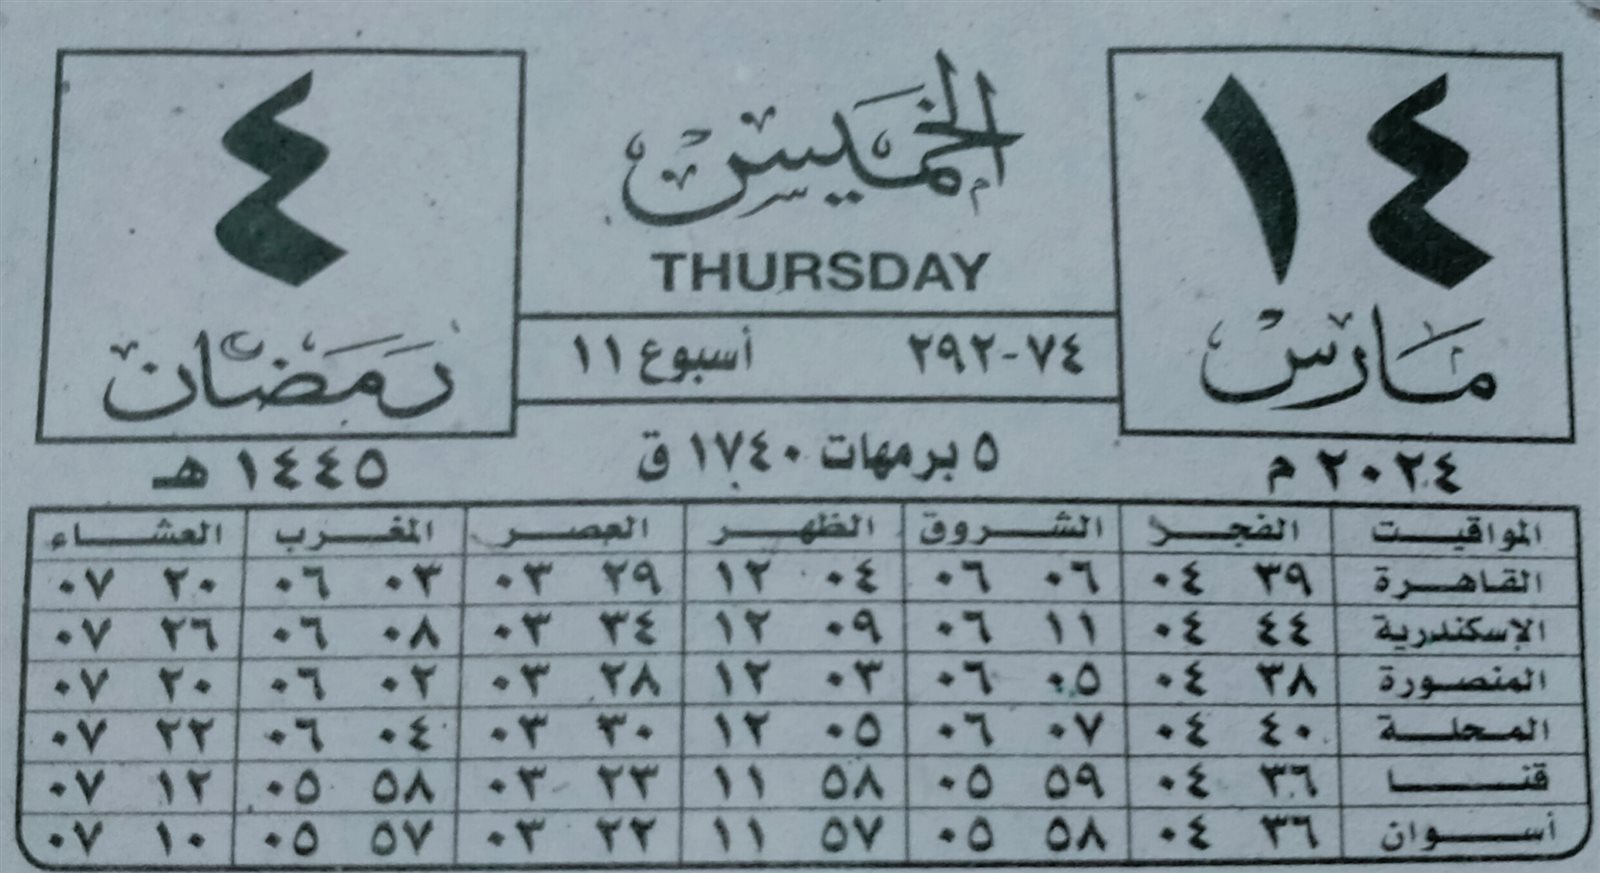 ١٤ الخميس ٤
مارس THURSDAY رمضان
٧٤-٢٩٢ أسبوع ١١
٢٠٢٤ م ٥ برمهات ١٧٤٠ ق ١٤٤٥ هـ
المواقيت الفجر الشروق الظهر العصر المغرب العشاء
القاهرة ٣٩ ٠٤ ٠٦ ٠٦ ٠٤ ١٢ ٢٩ ٠٣ ٠٣ ٠٦ ٢٠ ٠٧
الإسكندرية ٤٤ ٠٤ ١١ ٠٦ ٠٩ ١٢ ٣٤ ٠٣ ٠٨ ٠٦ ٢٦ ٠٧
المنصورة ٣٨ ٠٤ ٠٥ ٠٦ ٠٣ ١٢ ٢٨ ٠٣ ٠٢ ٠٦ ٢٠ ٠٧
المحلة ٤٠ ٠٤ ٠٧ ٠٦ ٠٥ ١٢ ٣٠ ٠٣ ٠٤ ٠٦ ٢٢ ٠٧
قنا ٣٦ ٠٤ ٥٩ ٠٥ ٥٨ ١١ ٢٣ ٠٣ ٥٨ ٠٥ ١٢ ٠٧
أسوان ٣٦ ٠٤ ٥٨ ٠٥ ٥٧ ١١ ٢٢ ٠٣ ٥٧ ٠٥ ١٠ ٠٧